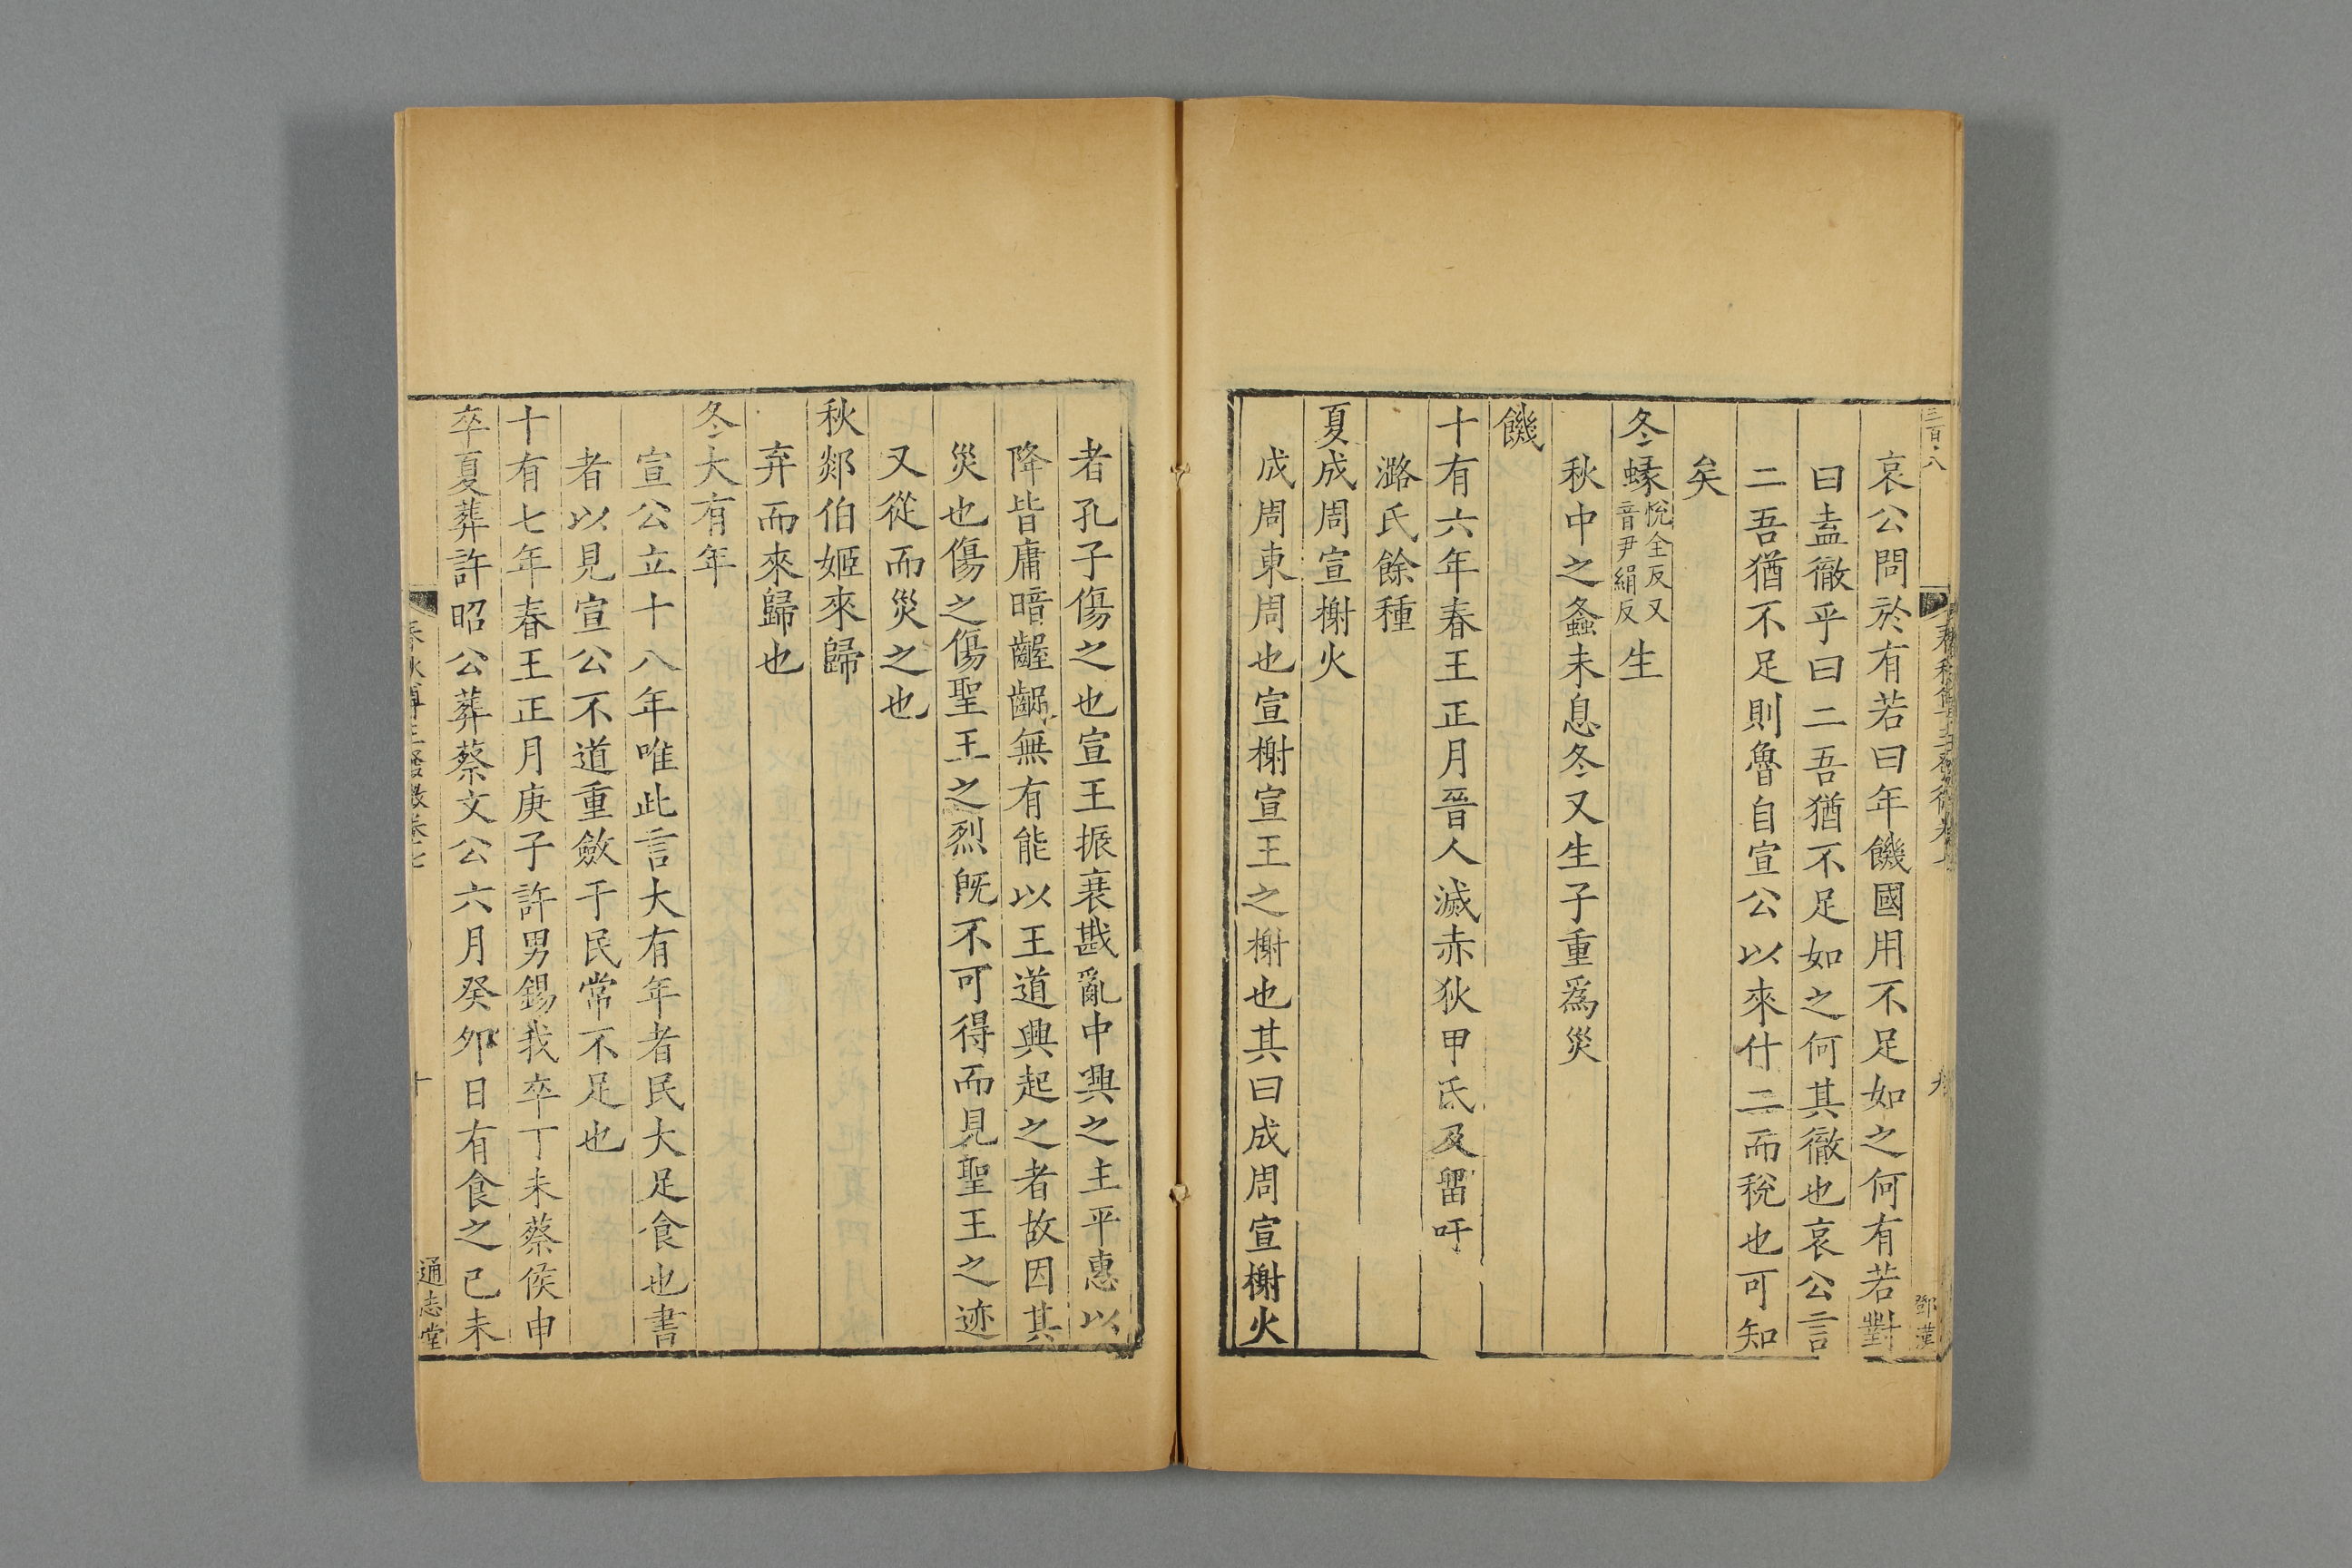 三百八
哀公問於有若曰年饑國用不足如之何有若對
曰盍徹乎曰二吾猶不足如之何其徹也哀公言
二吾猶不足則魯自宣公以來什二而稅也可知
矣
冬蝝悅全反又音尹絹反生
秋中之螽未息冬又生子重爲災
饑
十有六年春王正月晉人滅赤狄甲氏及留吁
潞氏餘種
夏成周宣榭火
成周東周也宣榭宣王之榭也其曰成周宣榭火
者孔子傷之也宣王振衰戡亂中興之主平惠以
降皆庸暗齷齪無有能以王道興起之者故因其
災也傷之傷聖王之烈旣不可得而見聖王之迹
又從而災之也
秋郯伯姬來歸
弃而來歸也
冬大有年
宣公立十八年唯此言大有年者民大足食也書
者以見宣公不道重斂于民常不足也
十有七年春王正月庚子許男錫我卒丁未蔡侯申
卒夏葬許昭公葬蔡文公六月癸卯日有食之己未
十
通志堂